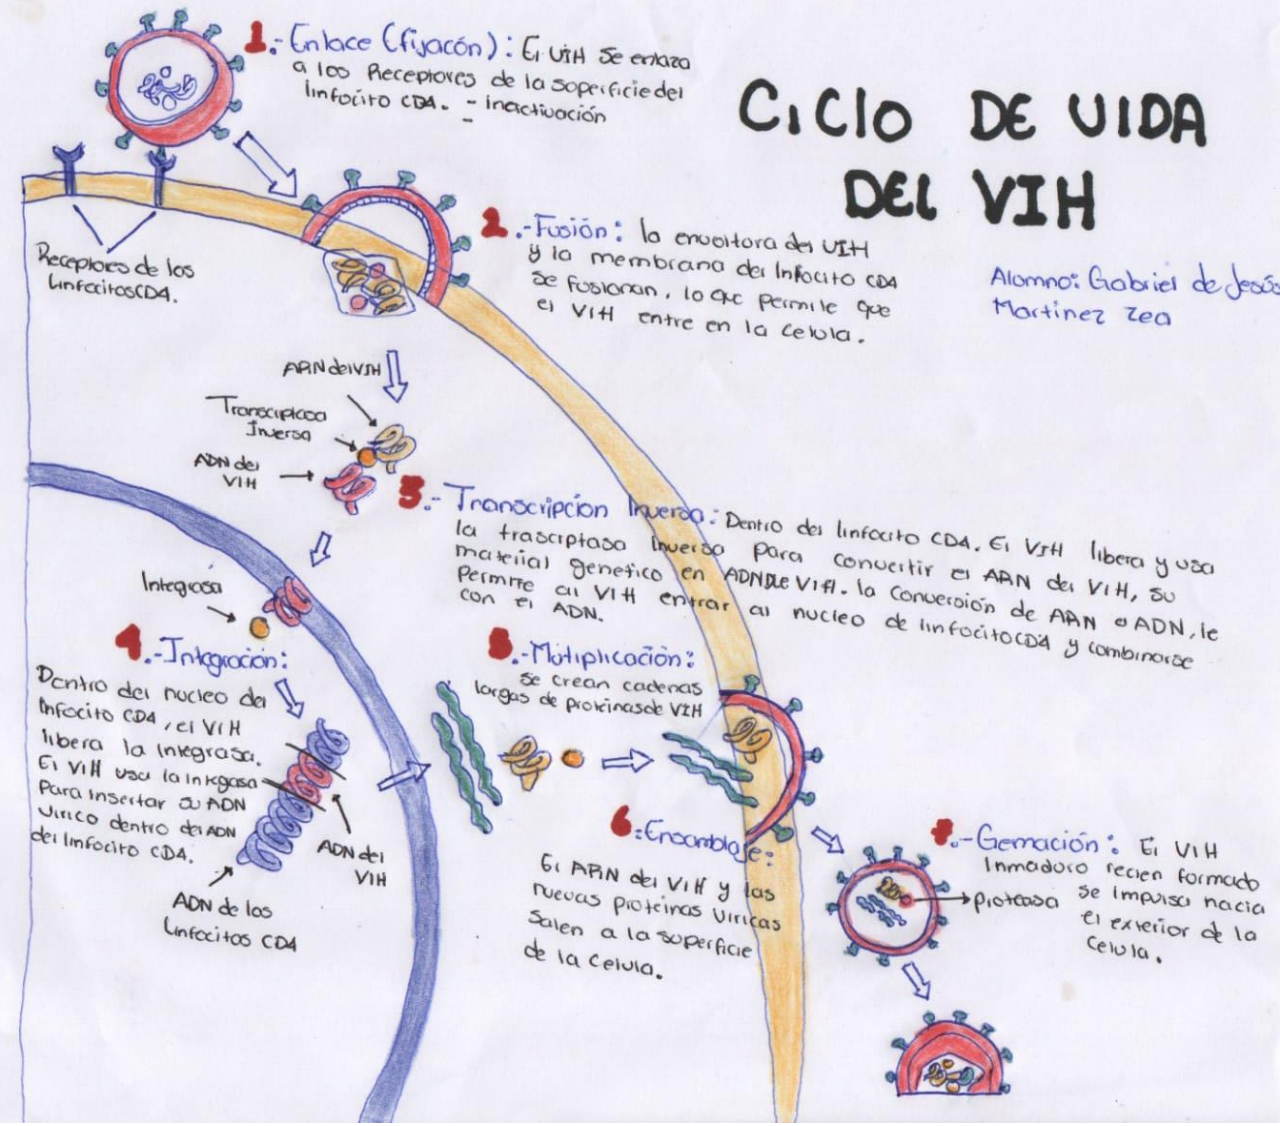 CICLO DE VIDA
DEL VIH
Alumno: Gabriel de Jesús
Martinez Zea
1.-Enlace (fijacón): El VIH se enlaza
a los Receptores de la superficie del
linfocito CD4. - inactivación
Receptores de los
linfocitos CD4.
2.-Fusión: la envoltora del VIH
y la membrana del linfocito CD4
se fusionan, lo que permite que
el VIH entre en la celula.
ARN del VIH
Transcriptasa
Inversa
ADN del
VIH
3.-Transcripción Inversa: Dentro del linfocito CD4. El VIH libera y usa
la trascriptasa inversa para convertir el ARN del VIH, su
material genetico en ADN DLE VIH. la conversión de ARN a ADN, le
permite al VIH entrar al nucleo de linfocito CD4 y combinarse
con el ADN.
Integrasa
4.-Integración:
Dentro del nucleo del
linfocito CD4, el VIH
libera la integrasa.
El VIH usa la intgasa
para insertar su ADN
virico dentro del ADN
del linfocito CD4.
ADN del
VIH
ADN de los
linfocitos CD4
5.-Mutiplicación:
se crean cadenas
largas de proteinas de VIH
6.-Ensamblaje:
El ARN del VIH y las
nuevas proteinas viricas
salen a la superficie
de la celula.
7.-Gemación: El VIH
Inmaduro recien formado
se impulsa hacia
el exterior de la
celula.
proteasa